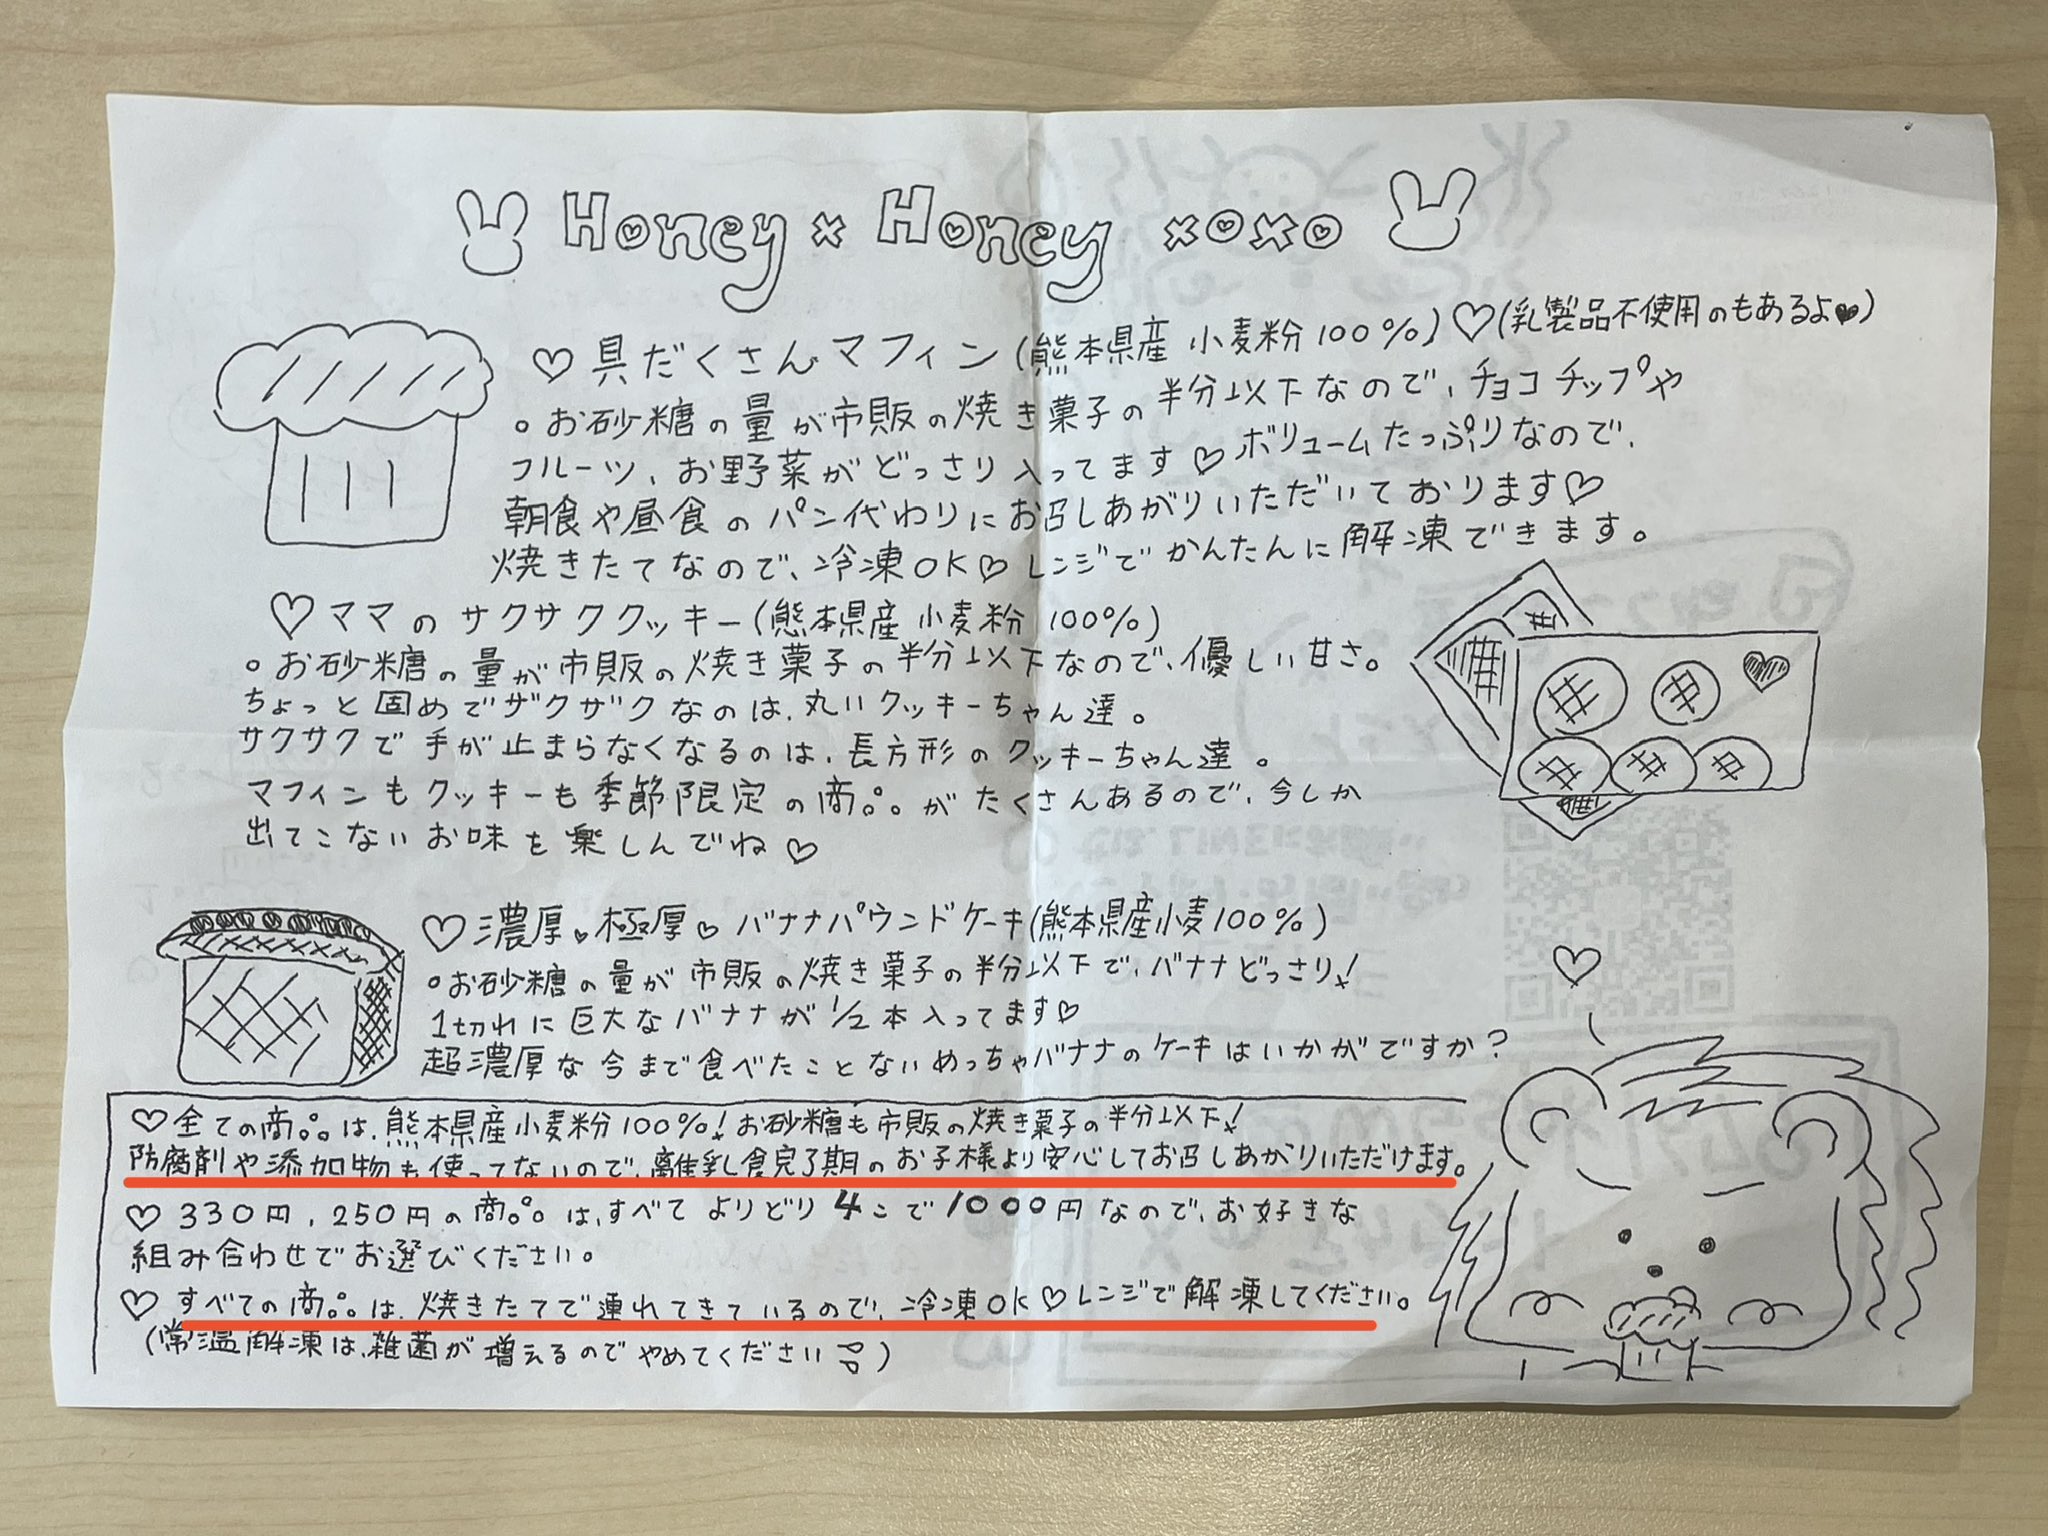 Honey × Honey xoxo
♡具だくさんマフィン(熊本県産 小麦粉100%)♡(乳製品不使用のもあるよ♥)
○お砂糖の量が市販の焼き菓子の半分以下なので、チョコチップや
フルーツ、お野菜がどっさり入ってます♡ボリュームたっぷりなので、
朝食や昼食のパン代わりにお召しあがりいただいております♡
焼きたてなので、冷凍OK♡レンジでかんたんに解凍できます。
♡ママのサクサククッキー(熊本県産 小麦粉 100%)
○お砂糖の量が市販の焼き菓子の半分以下なので、優しい甘さ。
ちょっと固めでザクザクなのは、丸いクッキーちゃん達。
サクサクで手が止まらなくなるのは、長方形のクッキーちゃん達。
マフィンもクッキーも季節限定の商品がたくさんあるので、今しか
出てこないお味を楽しんでね♡
♡濃厚♥極厚♡バナナパウンドケーキ(熊本県産小麦100%)
○お砂糖の量が市販の焼き菓子の半分以下で、バナナどっさり!
1切れに巨大なバナナが1/2本入ってます♡
超濃厚な今まで食べたことないめっちゃバナナのケーキはいかがですか?
♡全ての商品は、熊本県産小麦粉100%!お砂糖も市販の焼き菓子の半分以下!
防腐剤や添加物も使ってないので、離乳食完了期のお子様より安心してお召しあがりいただけます。
♡330円、250円の商品は、すべてよりどり4こで1000円なので、お好きな
組み合わせでお選びください。
♡すべての商品は、焼きたてで連れてきているので、冷凍OK♡レンジで解凍してください。
(常温解凍は、雑菌が増えるのでやめてください)